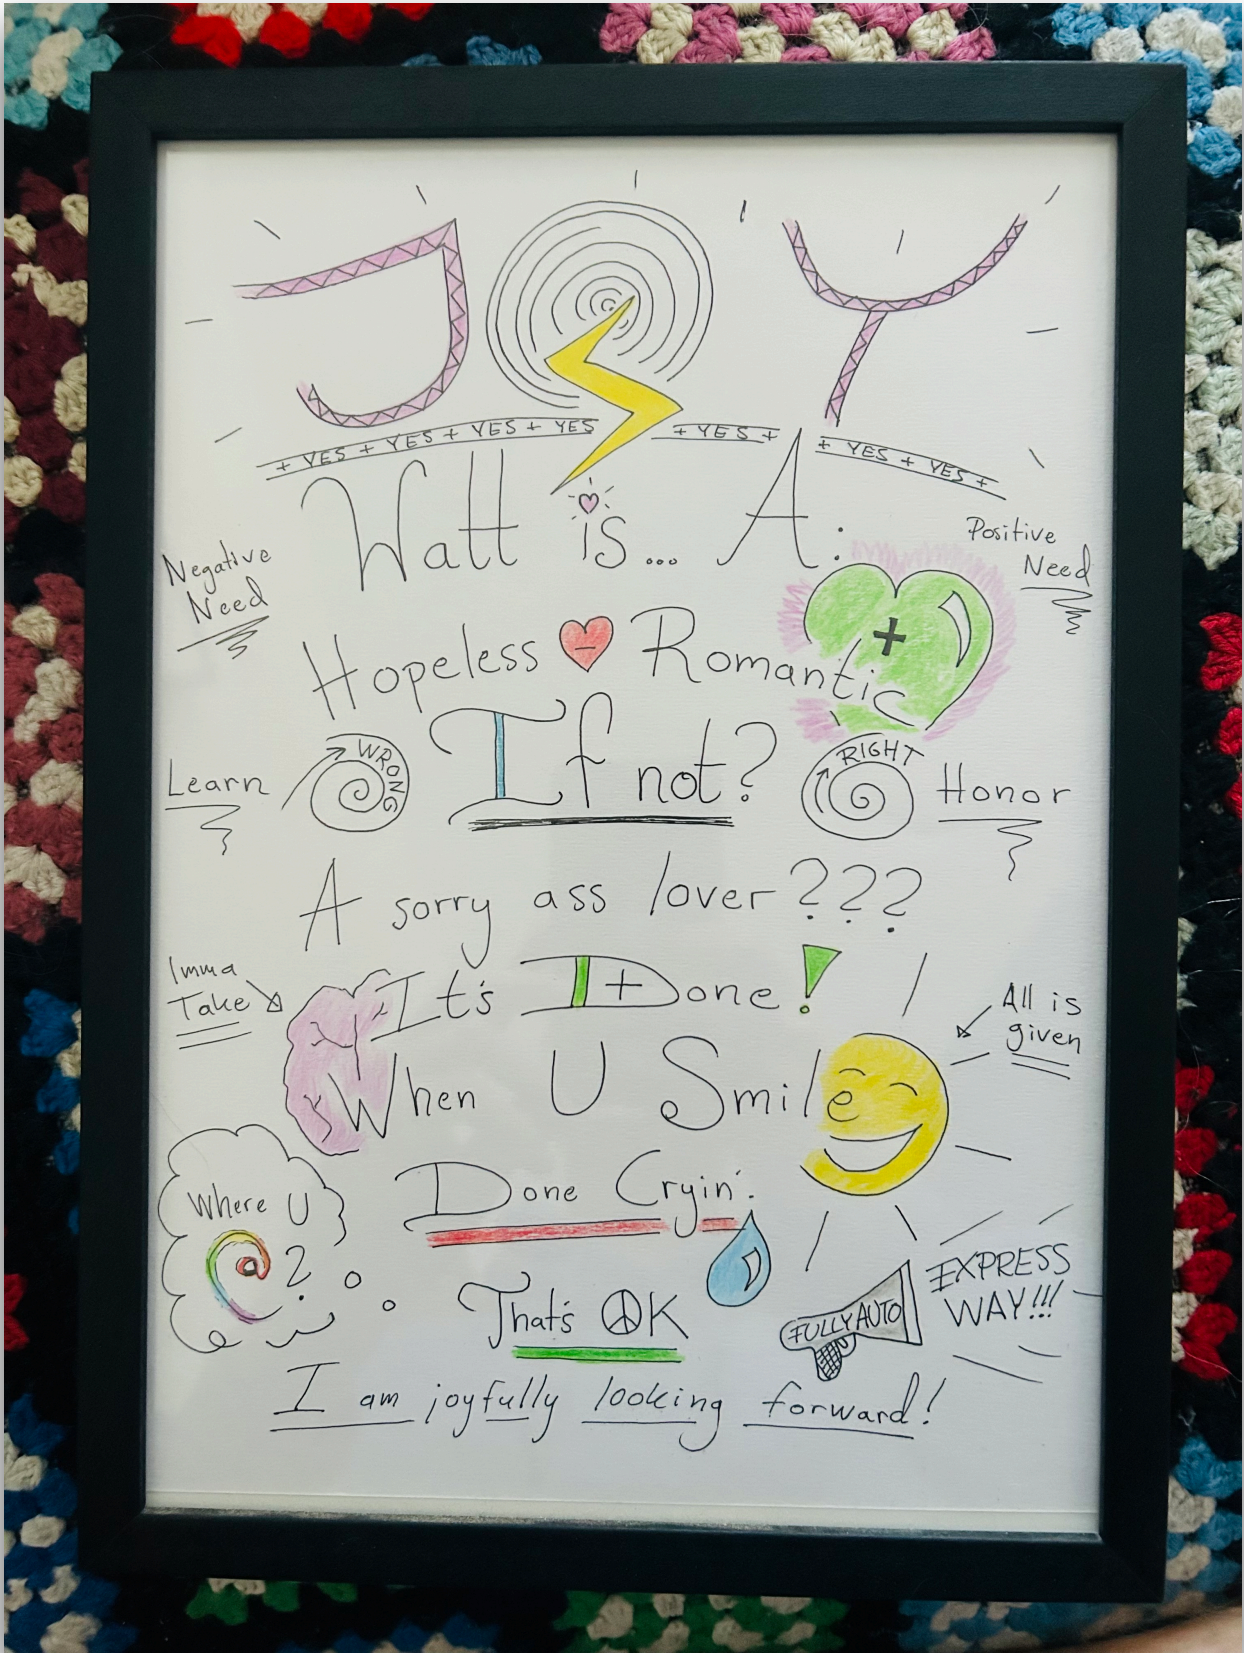 JOY
+ YES + YES + YES + YES + YES + + YES + YES +
Watt is... A:
Negative
Need
Positive
Need
+
Hopeless - Romantic
Learn
WRONG
If not?
RIGHT
Honor
A sorry ass lover ???
Imma
Take
It's I+Done!
All is
given
When U Smile
Where U
@?
Done Cryin'.
That's OK
FULLY AUTO
EXPRESS
WAY!!!
I am joyfully looking forward!